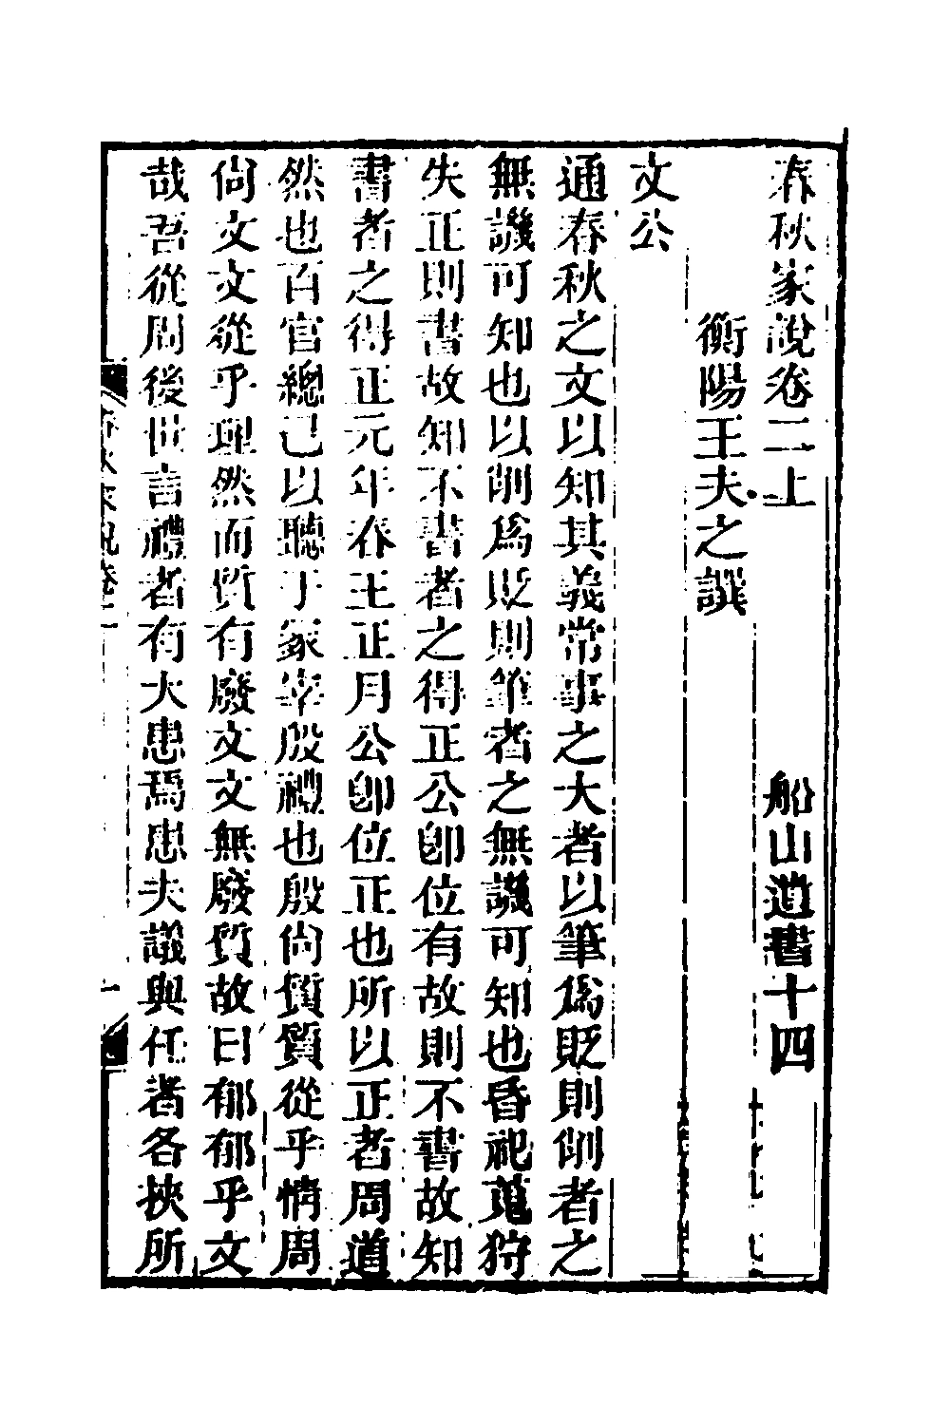 春秋家說卷二上 船山遺書十四
衡陽王夫之譔
文公
通春秋之文以知其義常事之大者以筆爲貶則削者之
無譏可知也以削爲貶則筆者之無譏可知也昏祀蒐狩
失正則書故知不書者之得正公卽位有故則不書故知
書者之得正元年春王正月公卽位正也所以正者周道
然也百官總己以聽于冢宰殷禮也殷尙質質從乎情周
尙文文從乎理然而質有廢文文無廢質故曰郁郁乎文
哉吾從周後世言禮者有大患焉患夫議與任者各挾所